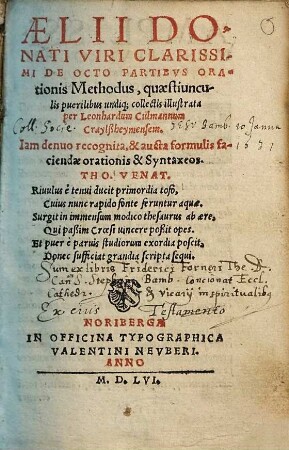 ÆLII DO-
NATI VIRI CLARISSI-
MI DE OCTO PARTIBVS ORA-
tionis Methodus, quæstiuncu-
lis puerilibus undiq; collectis illustrata
per Leonhardum Culmannum
Coll. Socie. Craylßheymensem. Iesu Bamb.
Iam denuo recognita, & aucta formulis fa-
ciendæ orationis & Syntaxeos.
THO. VENAT.
Riuulus è tenui ducit primordia tofo,
Cuius nunc rapido fonte feruntur aquæ.
Surgit in immensum modico thesaurus ab ære,
Qui passim Crœsi uincere possit opes.
Et puer è paruis studiorum exordia poscit,
Donec sufficiat grandia scripta sequi.
Sum ex libris Friderici Forneri The. D.
Can. S. Stephani Bamb. Concionat. Eccl.
Cathedr. & Vicarij in spiritualibq
Ex eius Testamento
NORIBERGÆ
IN OFFICINA TYPOGRAPHICA
VALENTINI NEVBERI.
ANNO
M. D. LVI.